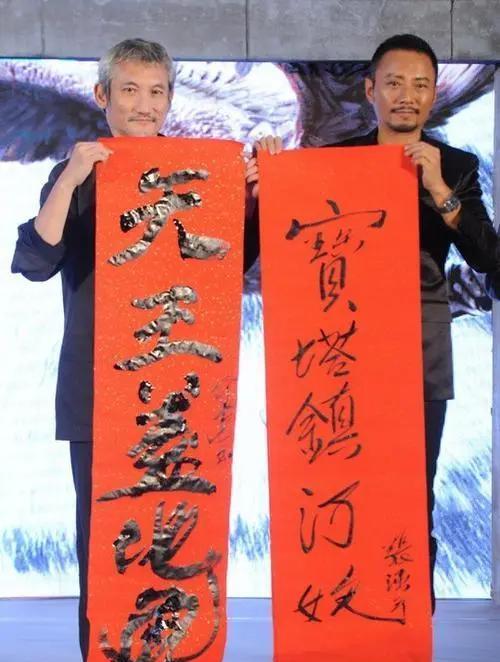 天王蓋地虎
寶塔鎮河妖
張涵予